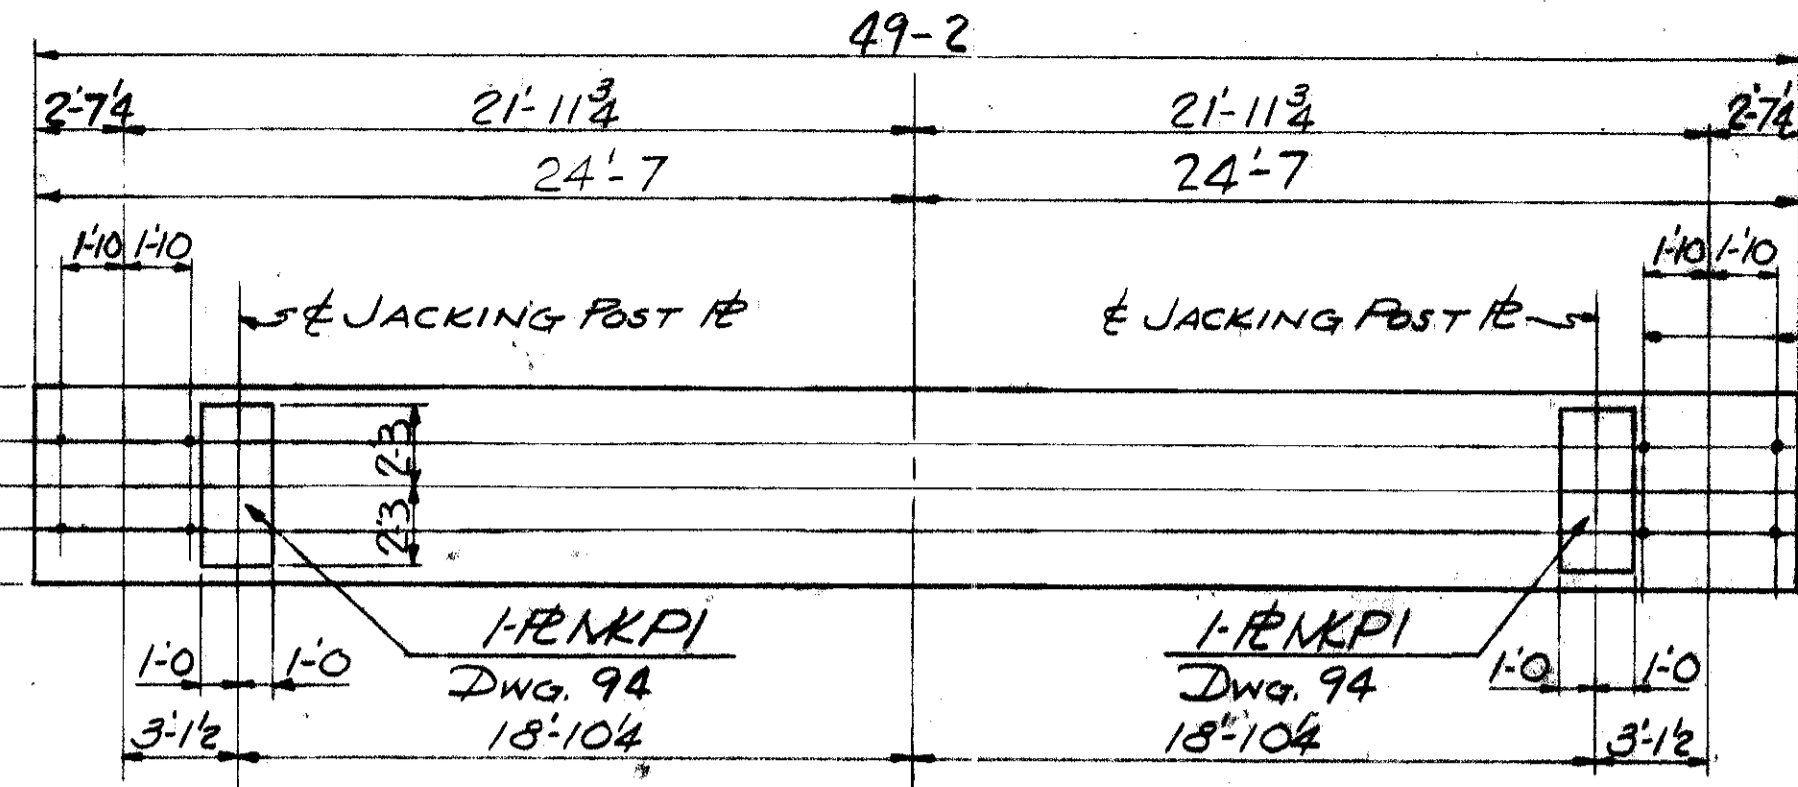 49-2
2'-7¼ 21'-11¾ 21'-11¾ 2'-7¼
24'-7 24'-7
1'-10 1'-10 1'-10 1'-10
℄ JACKING POST ⅊ ℄ JACKING POST ⅊
2'-3
2'-3
1-⅊ MKP1 1-⅊ MKP1
1'-0 1'-0 DWG. 94 DWG. 94 1'-0 1'-0
3'-1½ 18'-10¼ 18'-10¼ 3'-1½